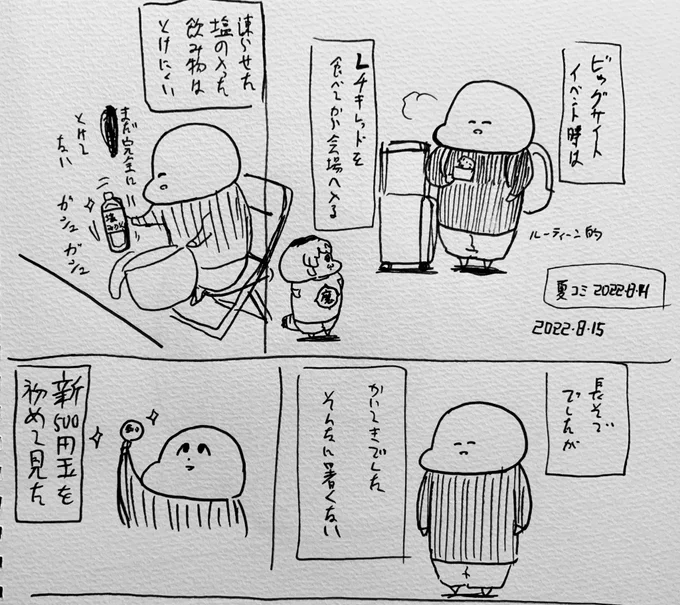 ビッグサイト
イベント時は
Lチキレッドを
食べてから会場へ入る
ルーティーン的
夏コミ 2022・8・14
2022・8・15
鬼
凍らせた
塩の入った
飲み物は
とけにくい
まだ完全に
とけて
ない
ガシュ
ガシュ
長そで
でしたが
かいてきでした
そんなに暑くない
新500円玉を
初めて見た